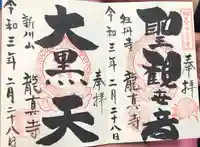 奉拝
聖観世音
牡丹寺
龍真寺
令和三年二月二十八日
奉拝
大黒天
新川山
龍真寺
令和三年二月二十八日